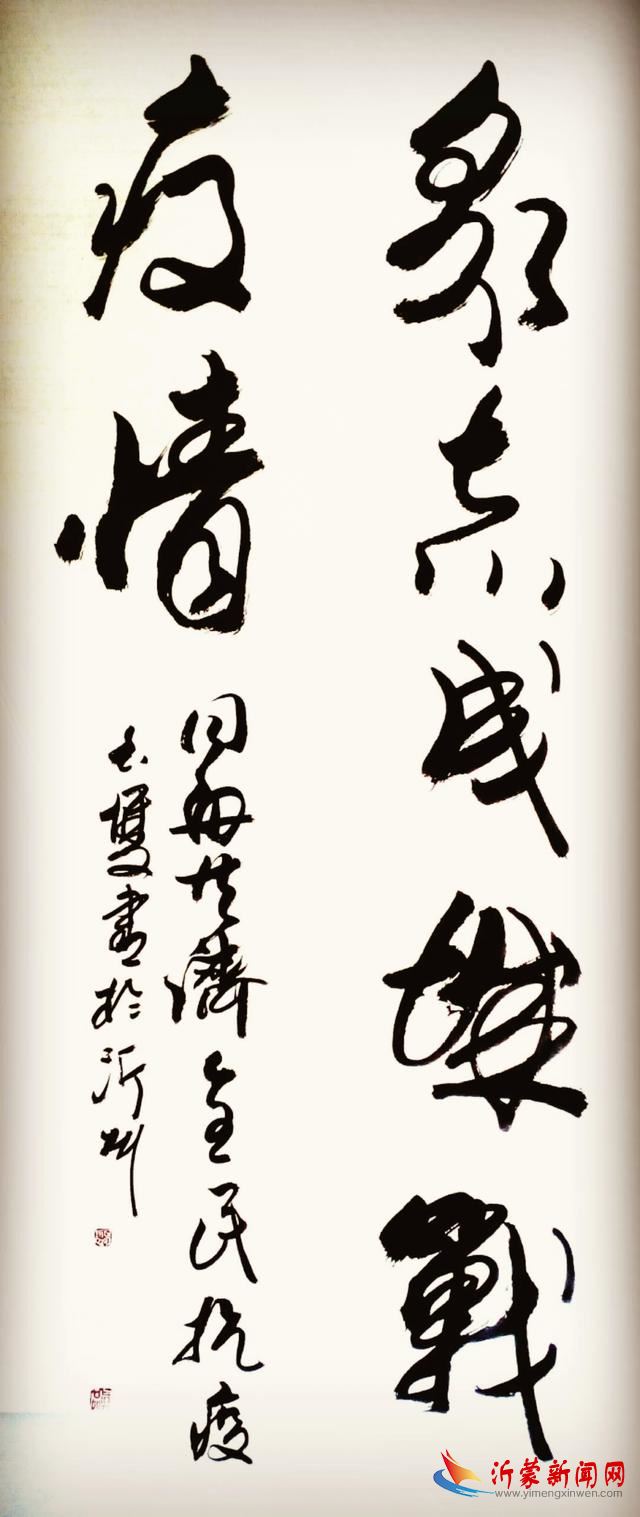 众志成城战
疫情
同舟共济全民抗疫
书于沂州
沂蒙新闻网
www.yimengxinwen.com